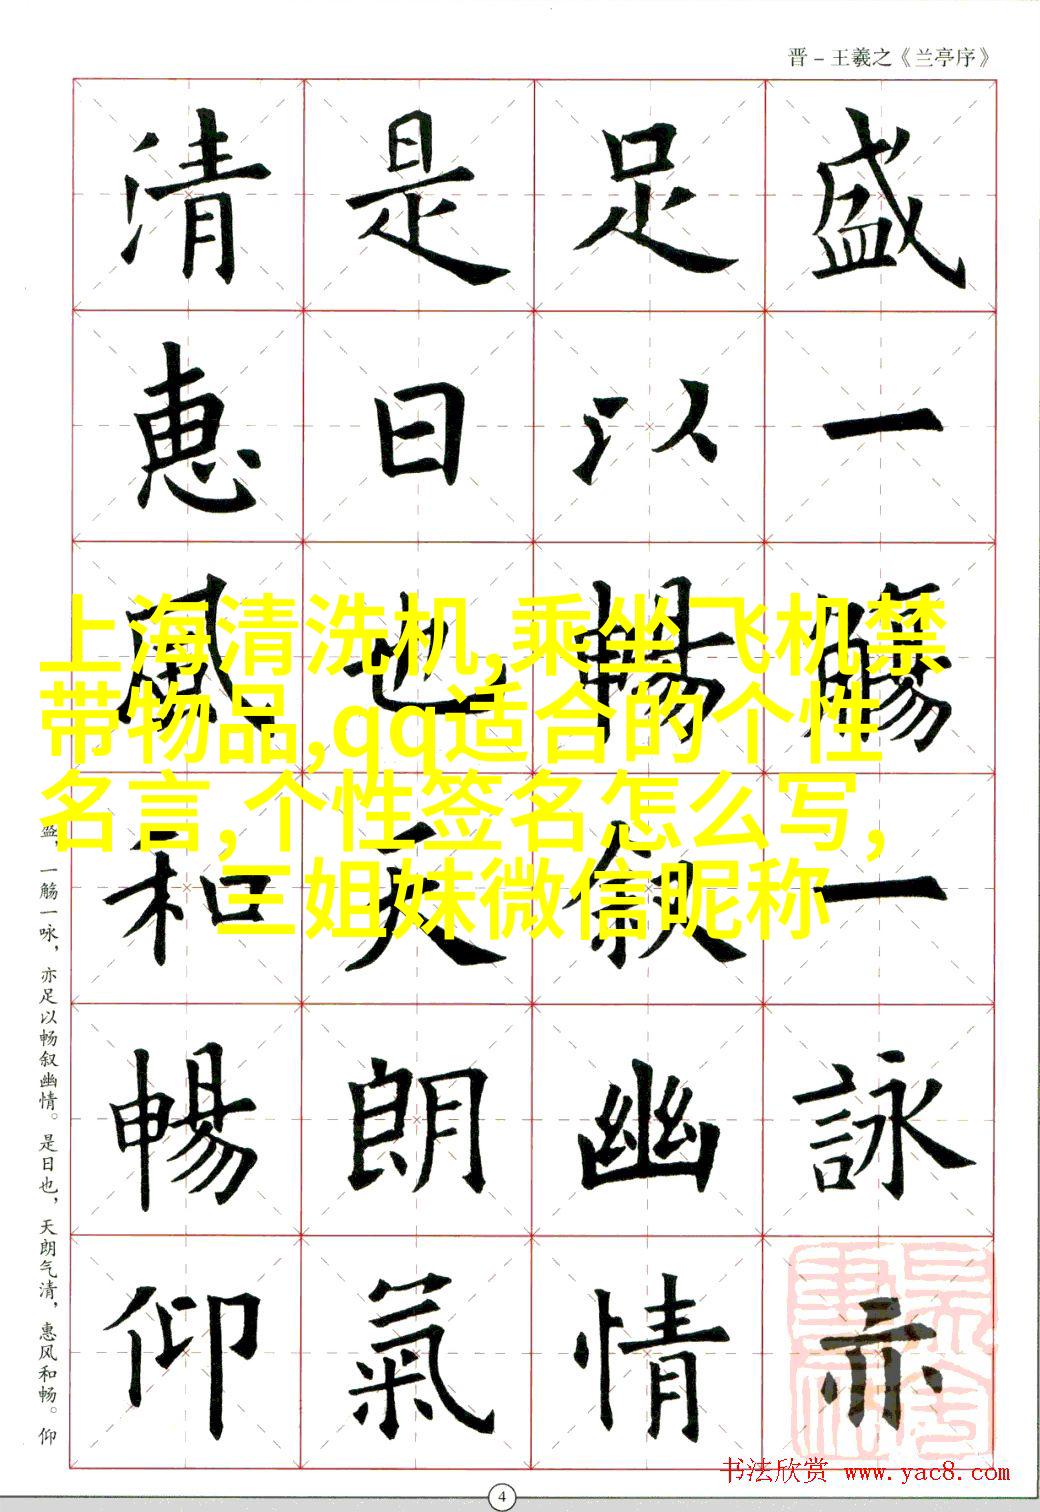 晋－王羲之《兰亭序》
盛一觴一詠亦
足以暢叙幽情
是日也天朗氣
清惠風和暢仰
上海清洗机,乘坐飞机禁
带物品,qq适合的个性
名言,个性签名怎么写,
三姐妹微信昵称
盛，一觞一咏，亦足以畅叙幽情。是日也，天朗气清，惠风和畅。仰
书法欣赏 www.yac8.com
4